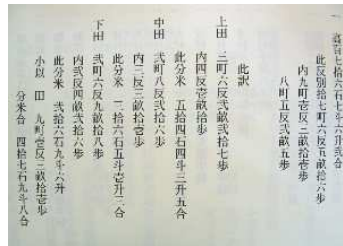 一 壱百七拾六石七斗六升弐合
此反別拾七町六反五畝拾六歩
内九町壱反三畝拾壱歩
八町五反弐畝五歩
此訳
上田 三町六反弐畝弐拾七歩
内四反壱畝拾歩
此分米 五拾四石四斗三升五合
中田 弐町八反弐拾六歩
内三反三畝拾壱歩
此分米 三拾六石五斗壱升三合
下田 弐町六反九畝拾八歩
内弐反四畝弐拾六歩
此分米 弐拾六石九斗六升
小以 田 九町壱反三畝拾壱歩
分米合 四拾七石九斗八合